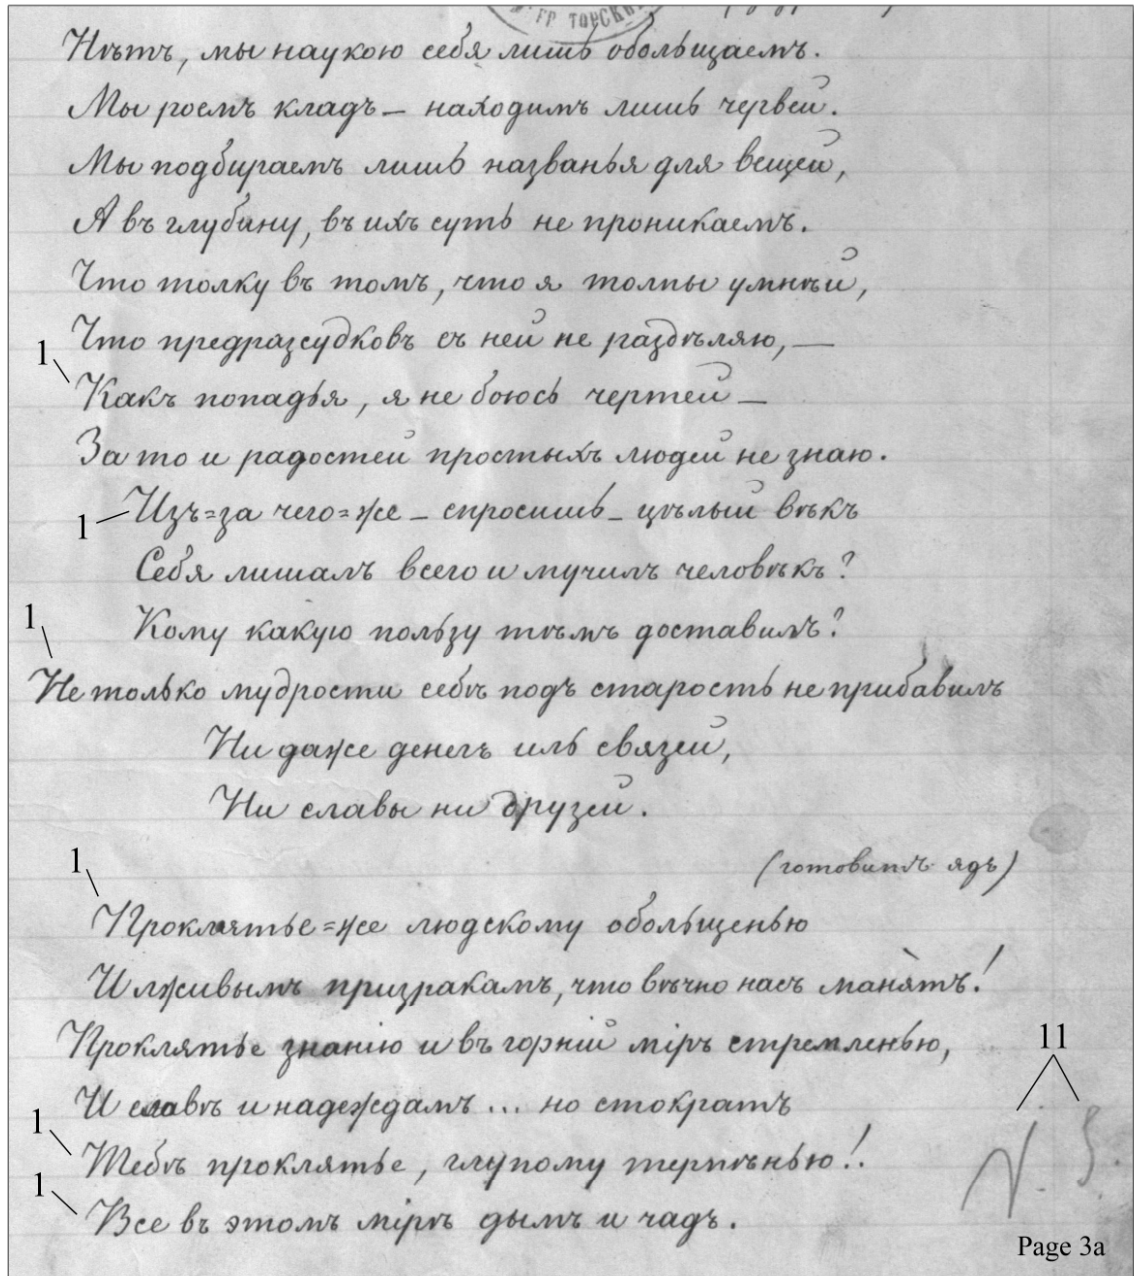 ТОРСК
Нѣтъ, мы наукою себя лишь обольщаемъ.
Мы роемъ кладъ – находимъ лишь червей.
Мы подбираемъ лишь названья для вещей,
А въ глубину, въ ихъ суть не проникаемъ.
Что толку въ томъ, что я толпы умнѣй,
Что предразсудковъ съ ней не раздѣляю, —
1
Какъ попадья, я не боюсь чертей —
За то и радостей простыхъ людей не знаю.
1
Изъ=за чего=же – спросишь – цѣлый вѣкъ
Себя лишалъ всего и мучилъ человѣкъ?
Кому какую пользу тѣмъ доставилъ?
1
Не только мудрости себѣ подъ старость не прибавилъ
Ни даже денегъ иль связей,
Ни славы ни друзей.
(готовитъ ядъ)
1
Проклятье=же людскому обольщенью
И лживымъ призракамъ, что вѣчно насъ маня̀тъ!
Проклятье знанію и въ горній міръ стремленью,
11
И славѣ и надеждамъ ... но стократъ
1
Тебѣ проклятье, глупому терпѣнью!.
1
Все въ этомъ мірѣ дымъ и чадъ.
Page 3a